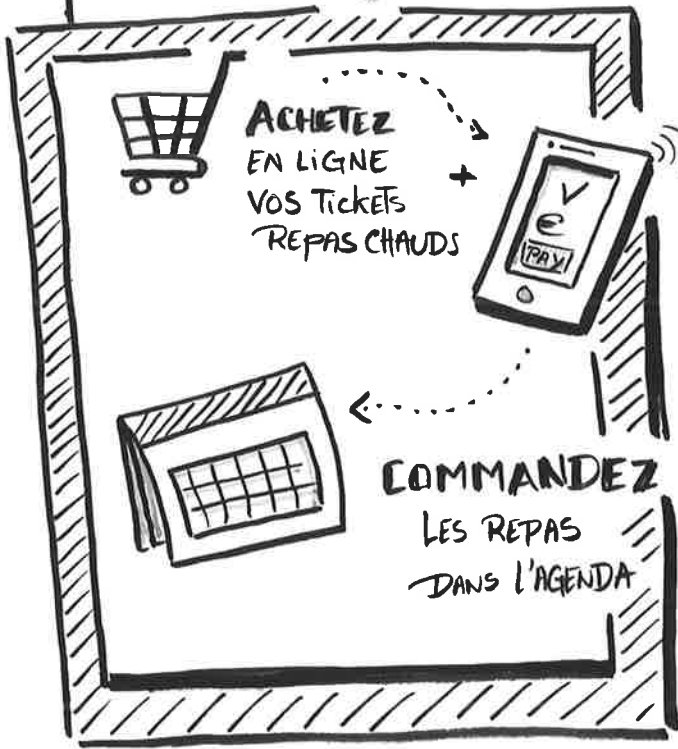 ACHETEZ
EN LiGNE
VOS TickETS
REPAS CHAUDS
+
V
€
PAY
COMMANDEZ
LES REPAS
DANS l'AGENDA